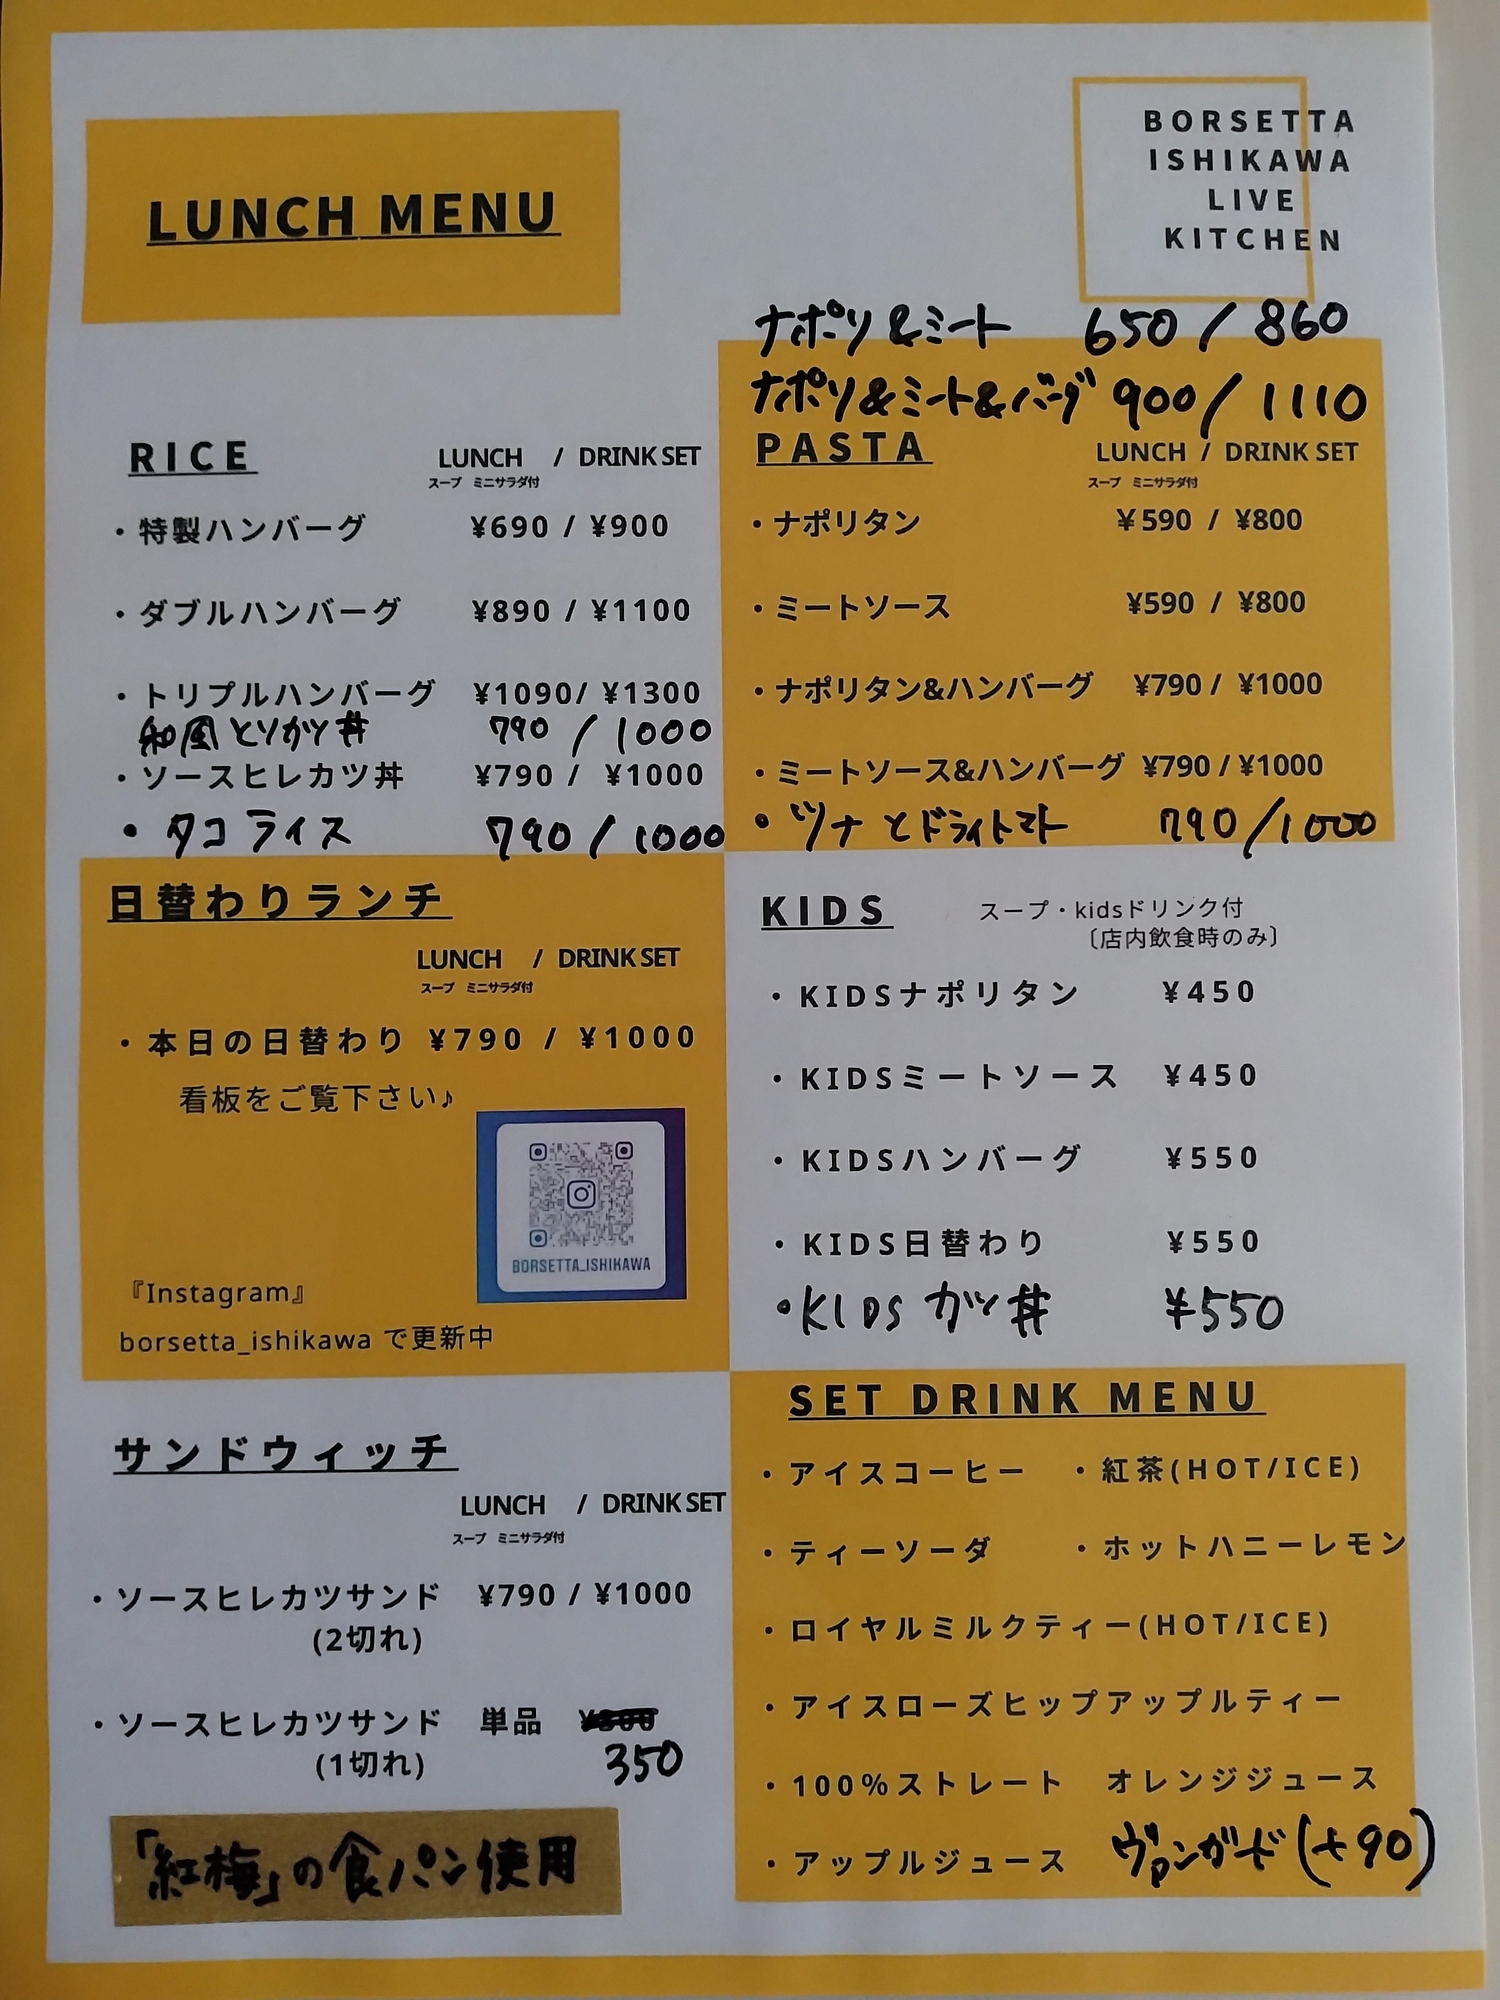 LUNCH MENU
BORSETTA
ISHIKAWA
LIVE
KITCHEN
ナポリ&ミート 650 / 860
ナポリ&ミート&バーグ 900 / 1110
RICE LUNCH / DRINK SET
スープ ミニサラダ付
・特製ハンバーグ ¥690 / ¥900
・ダブルハンバーグ ¥890 / ¥1100
・トリプルハンバーグ ¥1090/ ¥1300
和風とりかつ丼 790 / 1000
・ソースヒレカツ丼 ¥790 / ¥1000
・タコライス 790 / 1000
PASTA LUNCH / DRINK SET
スープ ミニサラダ付
・ナポリタン ¥590 / ¥800
・ミートソース ¥590 / ¥800
・ナポリタン&ハンバーグ ¥790 / ¥1000
・ミートソース&ハンバーグ ¥790 / ¥1000
・ツナとドライトマト 790 / 1000
日替わりランチ
LUNCH / DRINK SET
スープ ミニサラダ付
・本日の日替わり ¥790 / ¥1000
看板をご覧下さい♪
BORSETTA_ISHIKAWA
『Instagram』
borsetta_ishikawa で更新中
KIDS スープ・kidsドリンク付
〔店内飲食時のみ〕
・KIDSナポリタン ¥450
・KIDSミートソース ¥450
・KIDSハンバーグ ¥550
・KIDS日替わり ¥550
・KIDS カツ丼 ¥550
サンドウィッチ
LUNCH / DRINK SET
スープ ミニサラダ付
・ソースヒレカツサンド ¥790 / ¥1000
(2切れ)
・ソースヒレカツサンド 単品 ¥300
(1切れ) 350
「紅梅」の食パン使用
SET DRINK MENU
・アイスコーヒー ・紅茶(HOT/ICE)
・ティーソーダ ・ホットハニーレモン
・ロイヤルミルクティー(HOT/ICE)
・アイスローズヒップアップルティー
・100%ストレート オレンジジュース
・アップルジュース (+90)